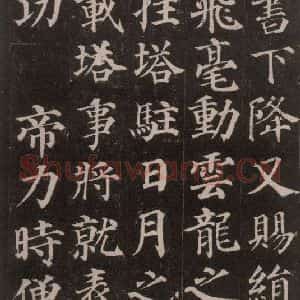 書下降又賜絹
飛毫動雲龍之
挂塔駐日月之
載塔事將就表
功 帝力時僧
Shufawang.CN